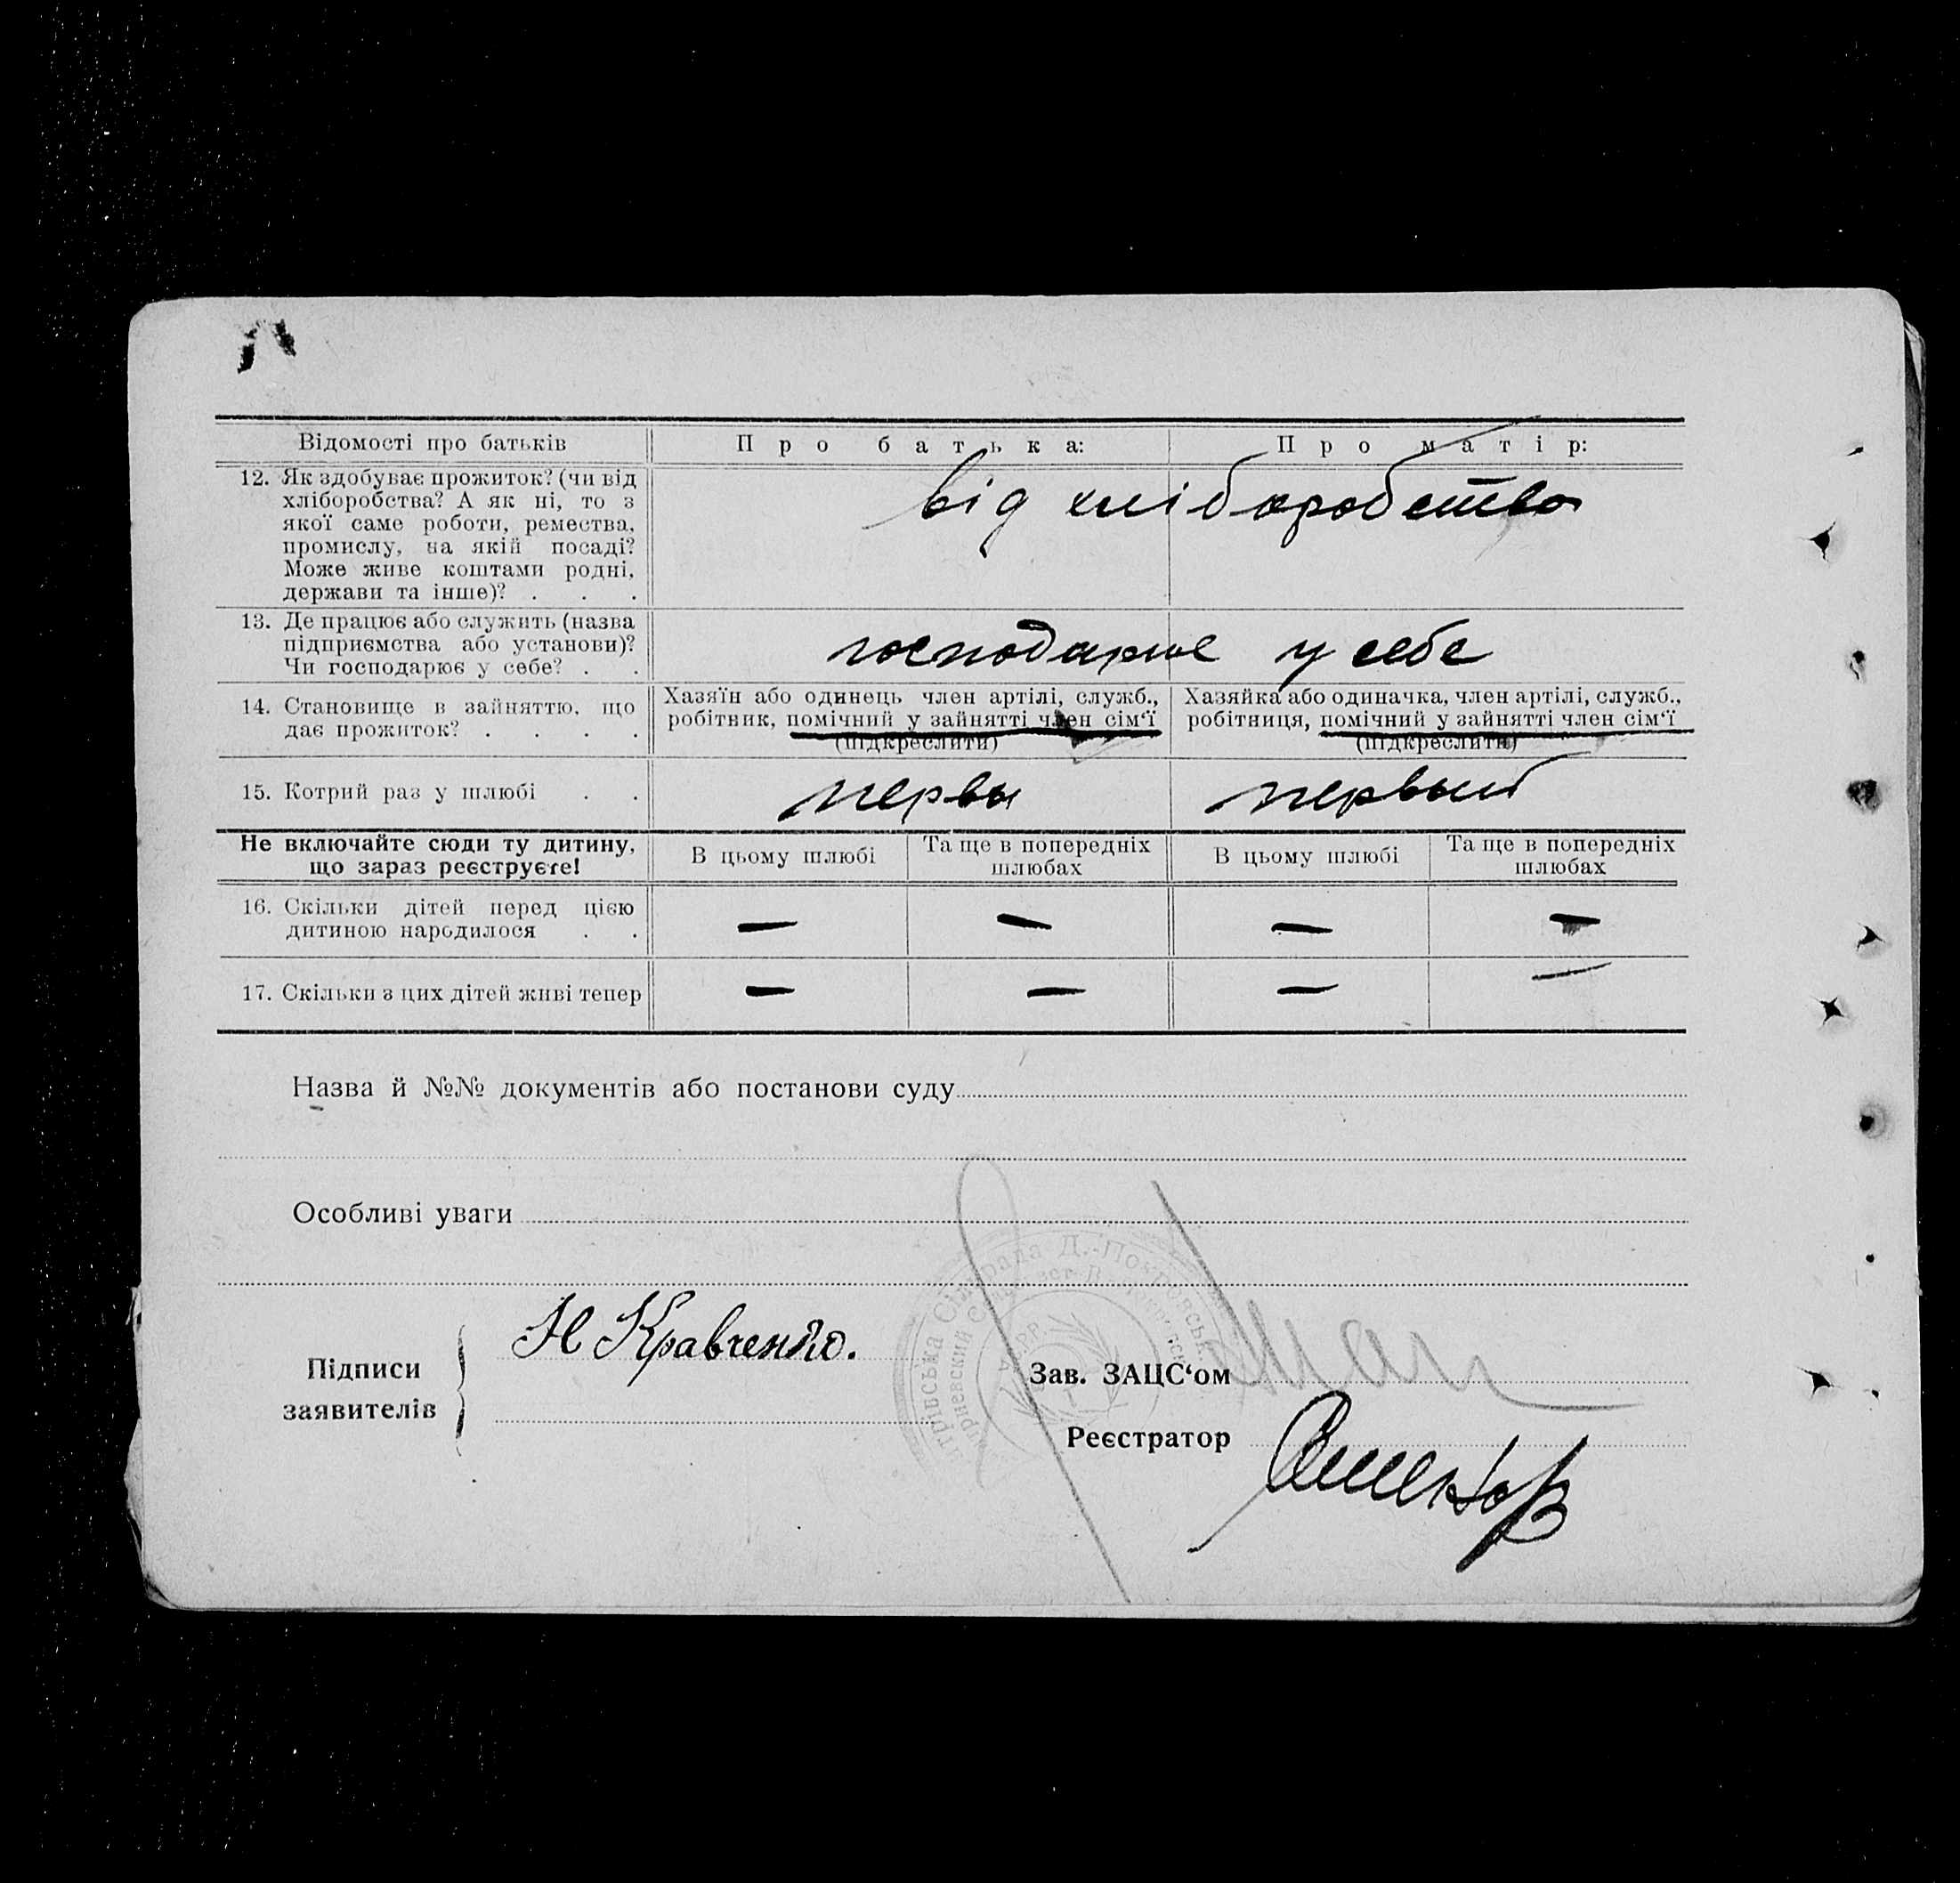 Відомості про батьків
Про батька:
Про матір:
12. Як здобуває прожиток? (чи від
хліборобства? А як ні, то з
якої саме роботи, ремества,
промислу, на якій посаді?
Може живе коштами родні,
держави та інше)? . . .
від хліборобства
13. Де працює або служить (назва
підприємства або установи)?
Чи господарює у себе? . .
господарює у себе
14. Становище в зайняттю, що
дає прожиток? . . . .
Хазяїн або одинець член артілі, служб.,
робітник, помічний у зайнятті член сім'ї
(підкреслити)
Хазяйка або одиначка, член артілі, служб.,
робітниця, помічний у зайнятті член сім'ї
(підкреслити)
15. Котрий раз у шлюбі . .
первы
первый
Не включайте сюди ту дитину,
що зараз реєструєте!
В цьому шлюбі
Та ще в попередніх
шлюбах
В цьому шлюбі
Та ще в попередніх
шлюбах
16. Скільки дітей перед цією
дитиною народилося . .
— — — —
17. Скільки з цих дітей живі тепер
— — — —
Назва й №№ документів або постанови суду
Особливі уваги
Підписи
заявителів
Н Кравченко.
Зав. ЗАЦС'ом
Реєстратор